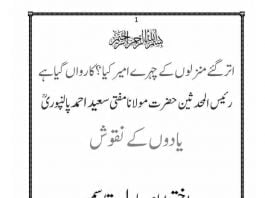 1
بسم الله الرحمن الرحيم
اتر گئے منزلوں کے چہرے امیر کیا؟ کارواں گیا ہے
رئیس المحدثین حضرت مولانا مفتی سعید احمد پالنپوریؒ
یادوں کے نقوش